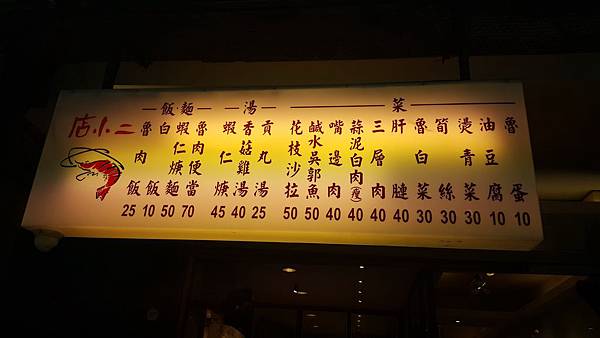 店小二
飯·麵
魯肉飯 25
白飯 10
蝦仁焿麵 50
魯肉便當 70
湯
蝦仁焿 45
香菇雞湯 40
貢丸湯 25
菜
花枝沙拉 50
鹹水吳郭魚 50
嘴邊肉 40
蒜泥白肉(瘦) 40
三層肉 40
肝腱 40
魯白菜 30
筍絲 30
燙青菜 30
油豆腐 10
魯蛋 10